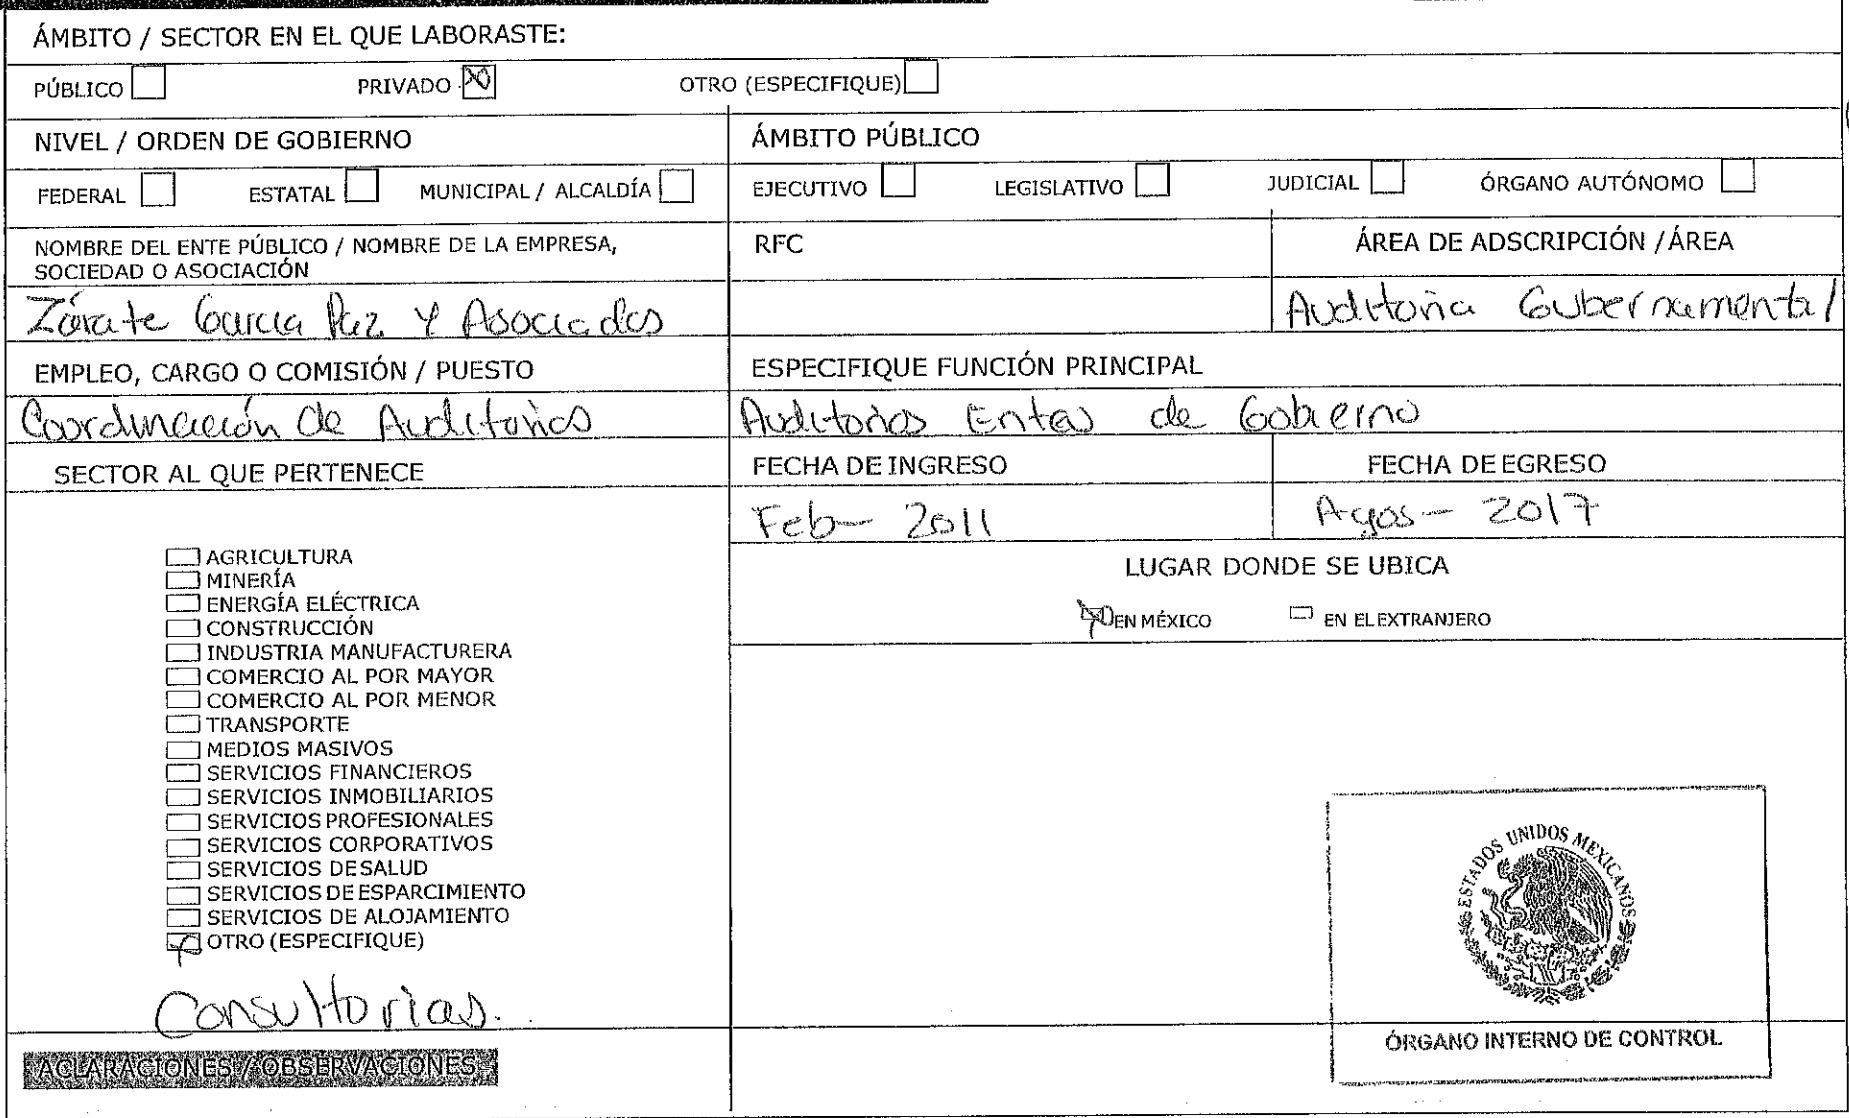 ÁMBITO / SECTOR EN EL QUE LABORASTE:
PÚBLICO PRIVADO OTRO (ESPECIFIQUE)
NIVEL / ORDEN DE GOBIERNO ÁMBITO PÚBLICO
FEDERAL ESTATAL MUNICIPAL / ALCALDÍA EJECUTIVO LEGISLATIVO JUDICIAL ÓRGANO AUTÓNOMO
NOMBRE DEL ENTE PÚBLICO / NOMBRE DE LA EMPRESA, RFC ÁREA DE ADSCRIPCIÓN / ÁREA
SOCIEDAD O ASOCIACIÓN
Zárate García Paz Y Asociados Auditoría Gubernamental
EMPLEO, CARGO O COMISIÓN / PUESTO ESPECIFIQUE FUNCIÓN PRINCIPAL
Coordinación de Auditorias Auditorias Entes de Gobierno
SECTOR AL QUE PERTENECE FECHA DE INGRESO FECHA DE EGRESO
Feb- 2011 Agos- 2017
LUGAR DONDE SE UBICA
EN MÉXICO EN EL EXTRANJERO
AGRICULTURA
MINERÍA
ENERGÍA ELÉCTRICA
CONSTRUCCIÓN
INDUSTRIA MANUFACTURERA
COMERCIO AL POR MAYOR
COMERCIO AL POR MENOR
TRANSPORTE
MEDIOS MASIVOS
SERVICIOS FINANCIEROS
SERVICIOS INMOBILIARIOS
SERVICIOS PROFESIONALES
SERVICIOS CORPORATIVOS
SERVICIOS DE SALUD
SERVICIOS DE ESPARCIMIENTO
SERVICIOS DE ALOJAMIENTO
OTRO (ESPECIFIQUE)
Consultorias.
ESTADOS UNIDOS MEXICANOS
ÓRGANO INTERNO DE CONTROL
ACLARACIONES / OBSERVACIONES